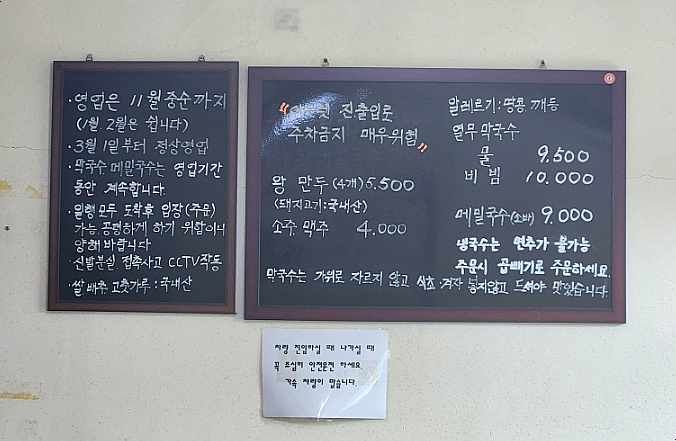 · 영업은 11월 중순까지
(1월. 2월은 쉽니다)
· 3월 1일부터 정상영업
· 막국수 메밀국수는 영업기간
동안 계속합니다.
· 일행 모두 도착후 입장(주문)
가능. 공평하게 하기 위함이니
양해 바랍니다
· 신발분실. 접촉사고 CCTV작동
· 쌀 배추. 고춧가루 : 국내산
진출입로
주차금지 매우위험
왕 만두 (4개) 5.500
(돼지고기: 국내산)
소주. 맥주 4.000
알레르기 : 땅콩. 깨등
열무 막국수
물 9.500
비빔 10.000
메밀국수(소바) 9.000
냉국수는 면추가 불가능
주문시 곱빼기로 주문하세요.
막국수는 가위로 자르지 않고 식초·겨자 넣지않고 드셔야 맛있습니다.
차량 진입하실 때 나가실 때
꼭 조심히 안전운전 하세요.
가속 차량이 많습니다.